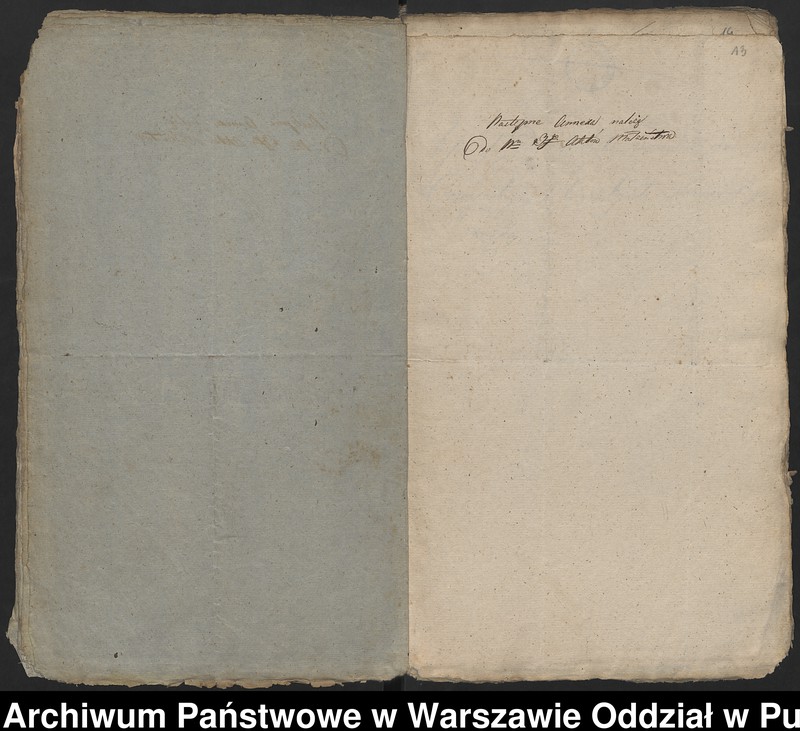 13
Następne Annexa należą
do Nro 3go Aktów Małżeństwa
Archiwum Państwowe w Warszawie Oddział w Pu